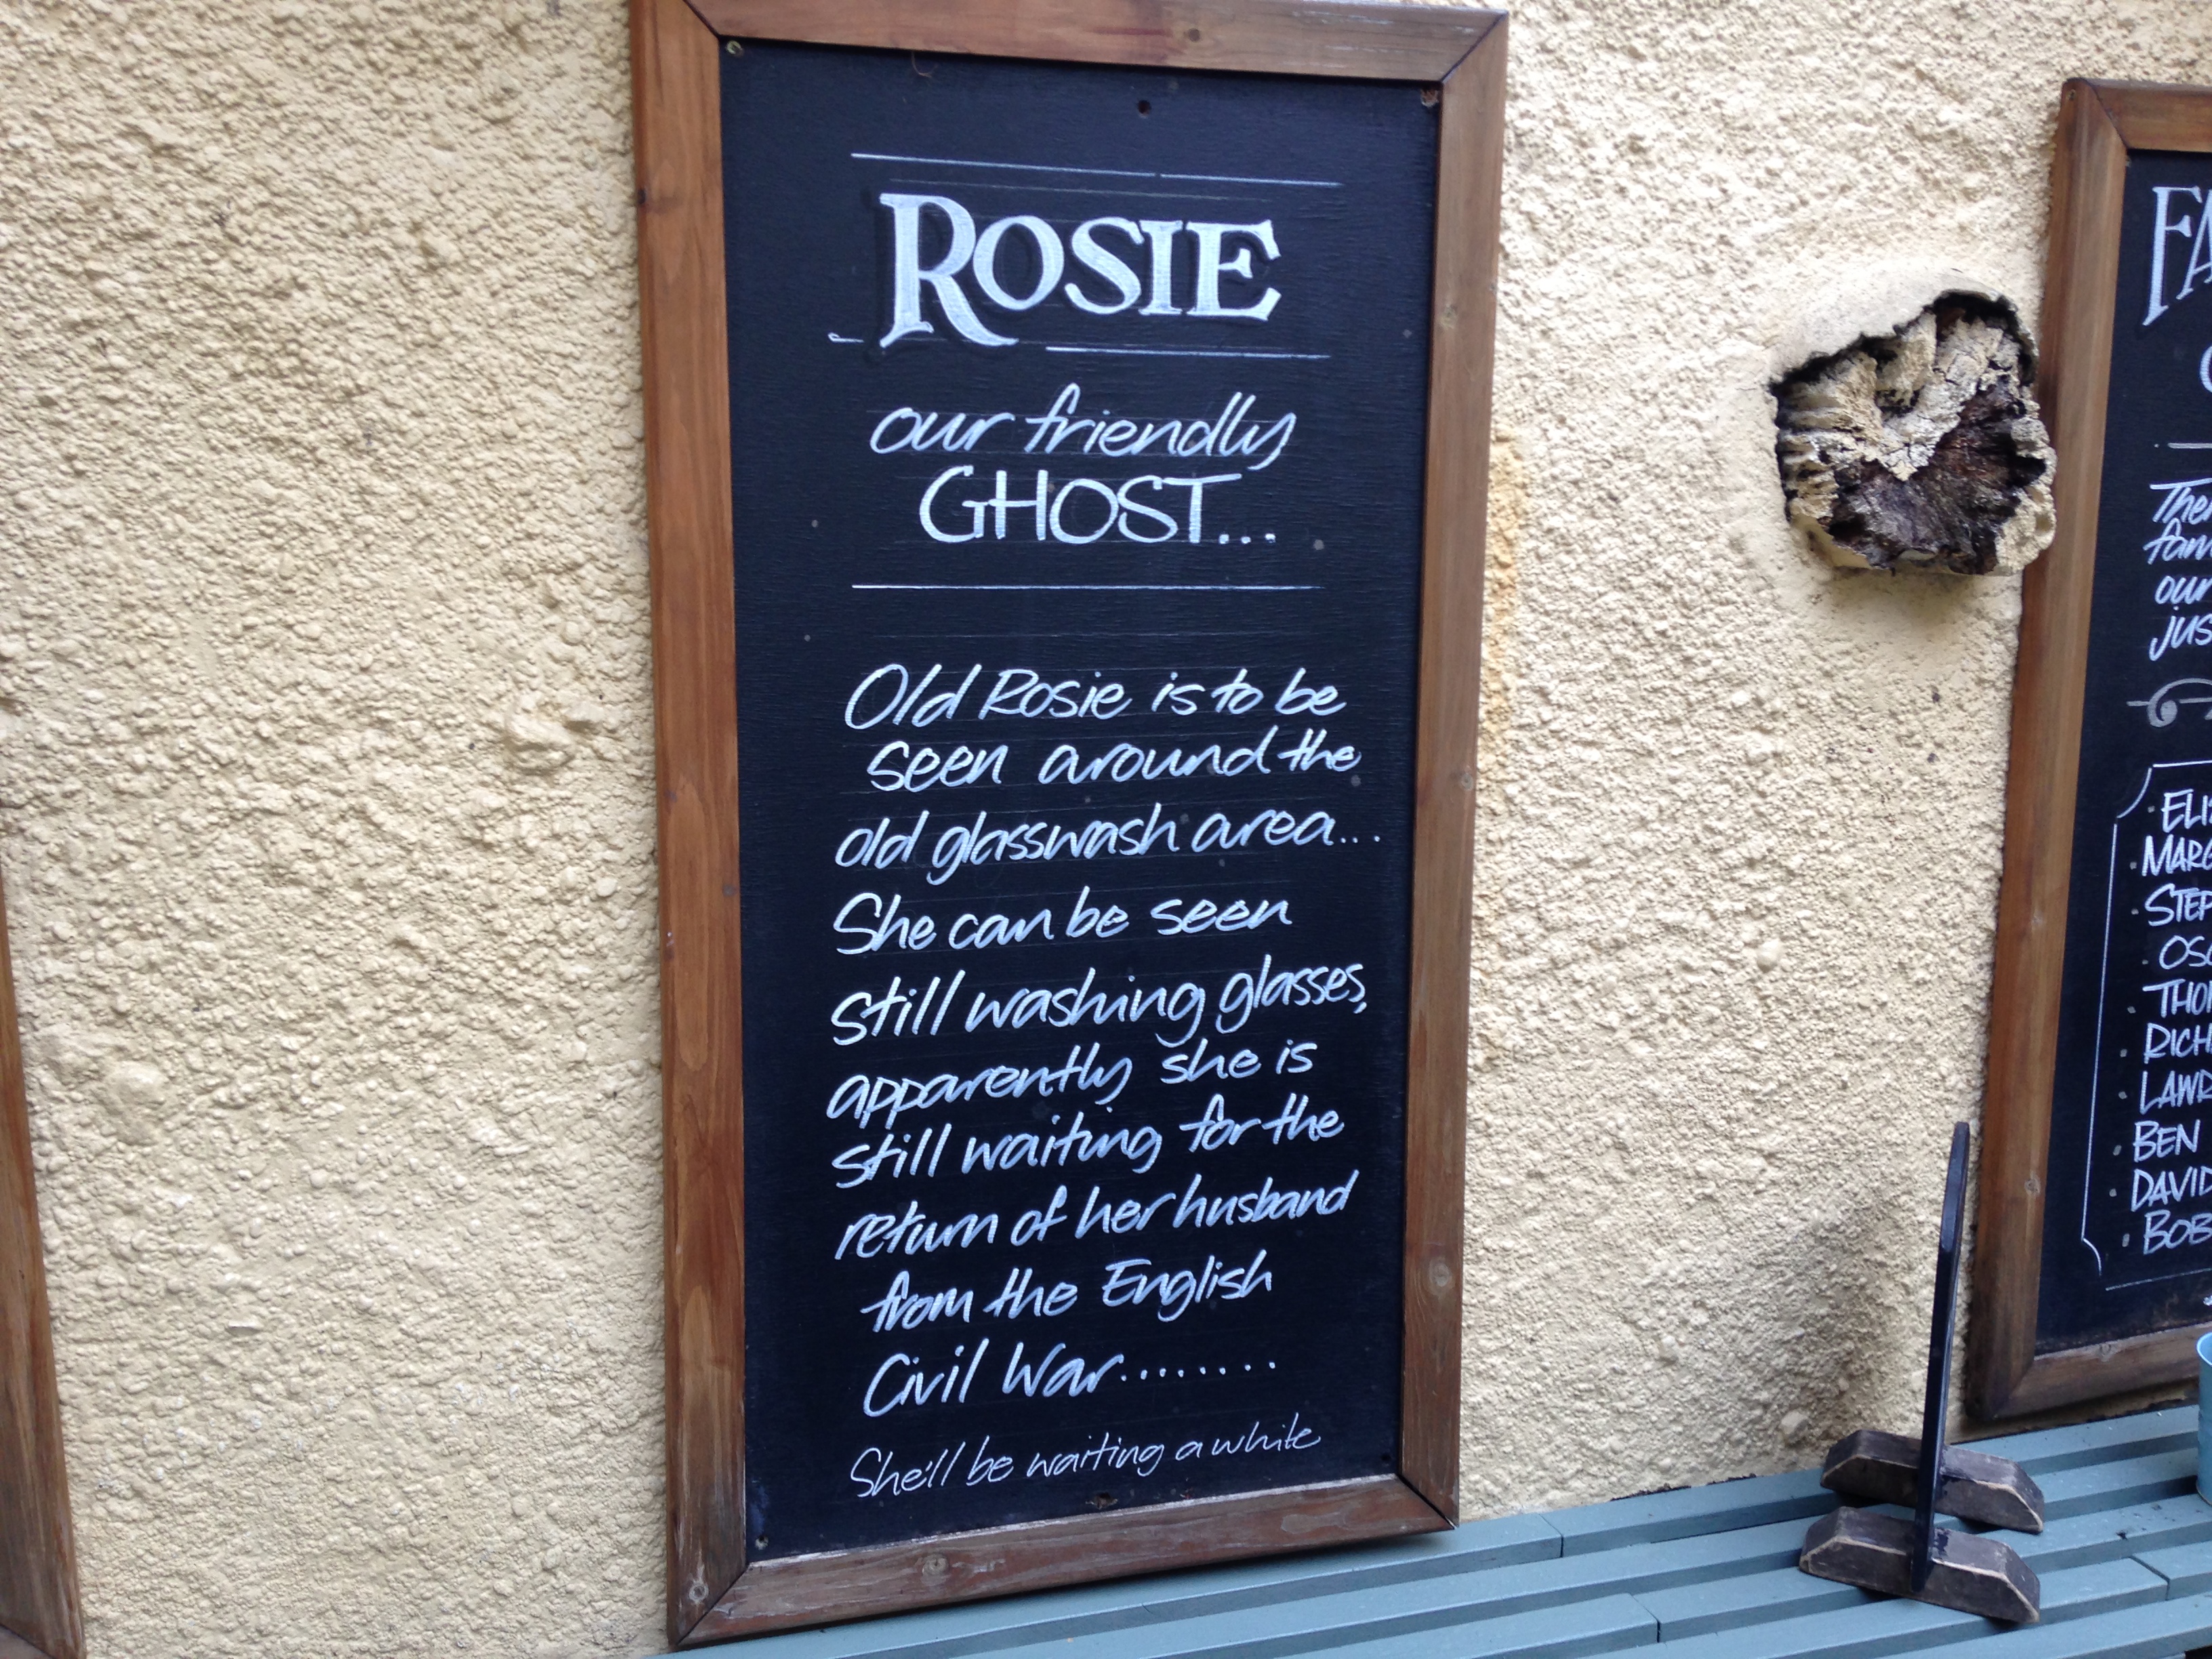 ROSIE
our friendly
GHOST...
Old Rosie is to be
seen around the
old glasswash area...
She can be seen
still washing glasses,
apparently she is
still waiting for the
return of her husband
from the English
Civil War........
She'll be waiting a while
our
BEN
DAVID